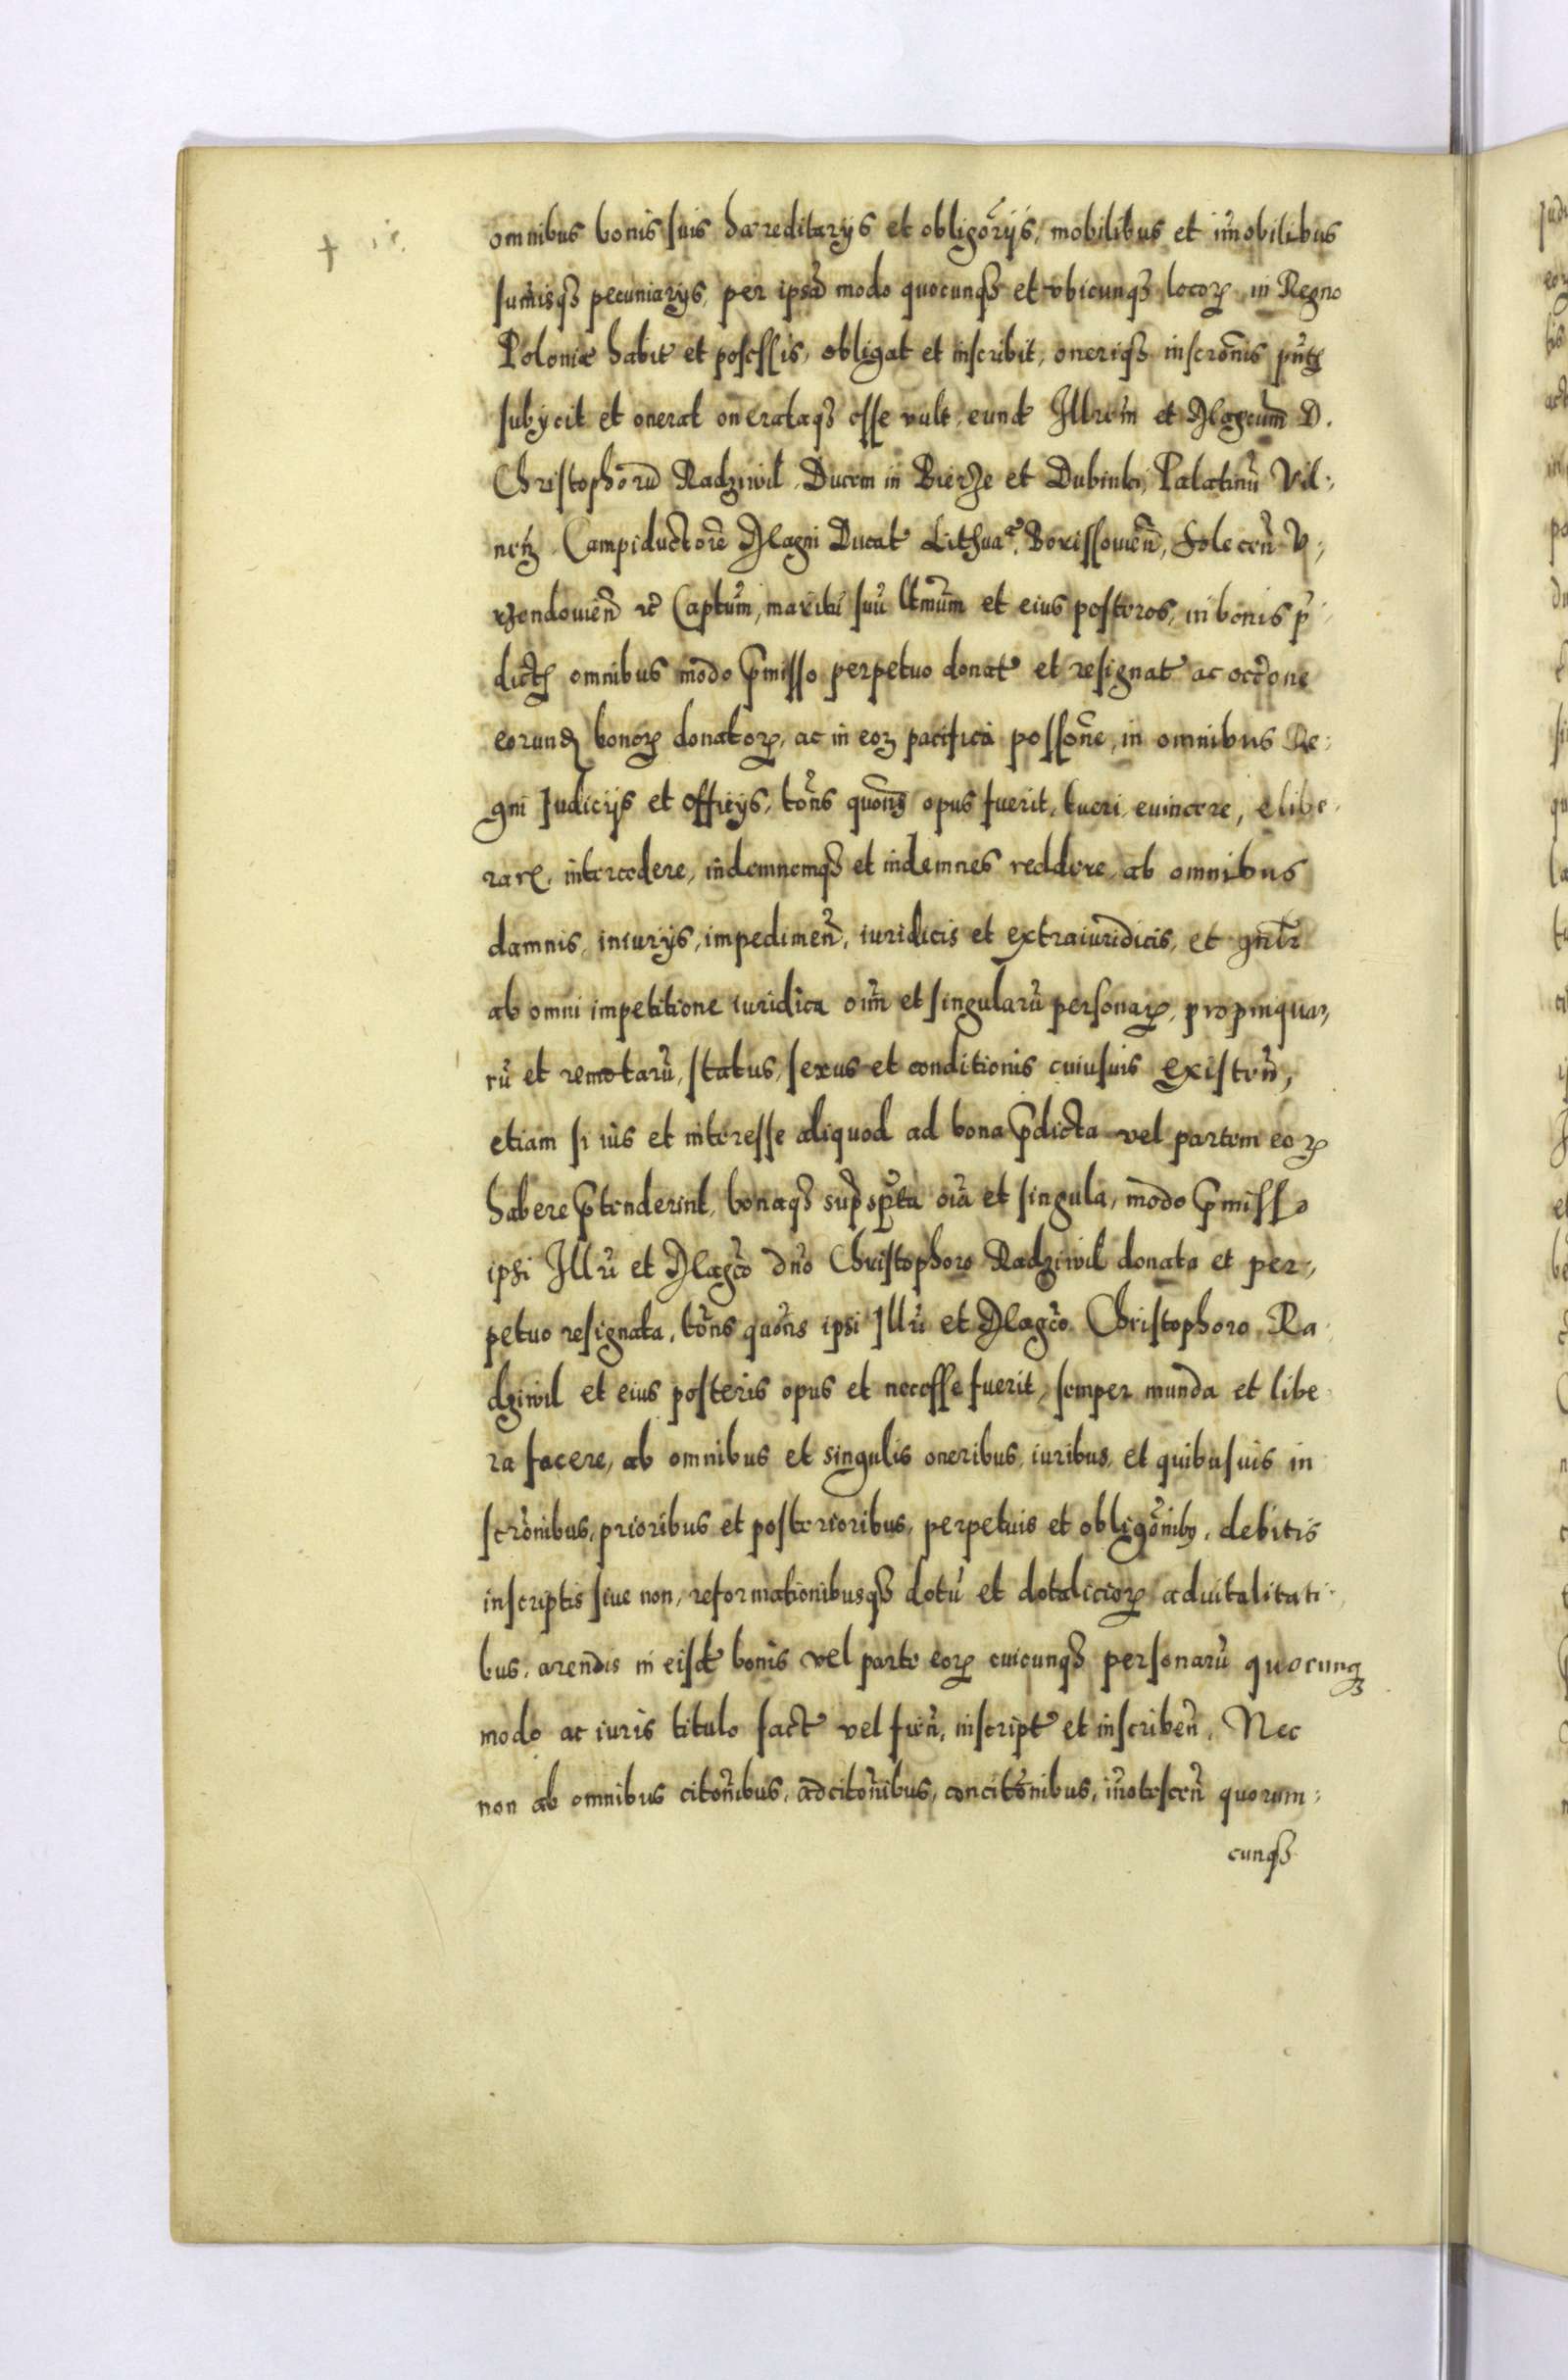 omnibus bonis suis hæreditarijs et obligõrijs, mobilibus et im̃obilibus
sum̃isqȝ pecuniarijs, per ipsã modo quocunqȝ et vbicunqȝ locoꝝ in Regno
Poloniæ habit̃ et posessis, obligat et inscribit, oneriqȝ inscrõnis pñtȝ
subijcit et onerat onerataqȝ esse vult, eund̃ Illrem̃ et Magcum̃ D.
Christophorũ Radziwil, Ducem in Bierże et Dubinki, Palatinũ Vil:
neñ, Campiductorẽ Magni Ducat̃ Lithuæ, Borissouieñ, Soleceñ V:
rzendouieñ etc̃ Captum̃, maritũ suũ ltmum̃ et eius posteros, in bonis p̃
dictȝ omnibus modo ꝑmisso perpetuo donat̃ et resignat̃ ac occõne
eorund̃ bonoꝝ donatoꝝ, ac in eoꝝ pacifica possõne, in omnibus Re:
gni Judicijs et officijs, tõns quõns opus fuerit, tueri, euincere, elibe:
rare, intercedere, indemnemqȝ et indemnes reddere, ab omnibus
damnis, iniurijs, impedimeñ, iuridicis et extraiuridicis, et gñlr
ab omni impetitione iuridica oim̃ et singularũ personaꝝ, propinqua,
rũ et remotarũ, status, sexus et conditionis cuiusuis existeñ,
etiam si ius et interesse aliquod ad bona ꝑdicta vel partem eoꝝ
habere ꝑtenderint, bonaqȝ sup̃sp̃ta oĩa et singula, modo ꝑmisso
ipsi Illrĩ et Magc̃o dño Christophoro Radziwil donata et per:
petuo resignata, tõns quõns ipsi Illrĩ et Magc̃o Christophoro Ra
dziwil et eius posteris opus et necesse fuerit, semper munda et libe
ra facere, ab omnibus et singulis oneribus, iuribus, et quibusuis in
scrõnibus, prioribus et posterioribus, perpetuis et obligõnibȝ, debitis
inscriptis siue non, reformationibusqȝ dotũ et dotalicioꝝ aduitalitati:
bus, arendis in eisd̃ bonis vel parte eoꝝ cuicunqȝ personarũ quocunqȝ
modo ac iuris titulo fact̃ vel fieñ, inscript̃ et inscribeñ, Nec
non ab omnibus citõnibus, adcitõnibus, concitõnibus, iñotesceñ quorum:
cunqȝ